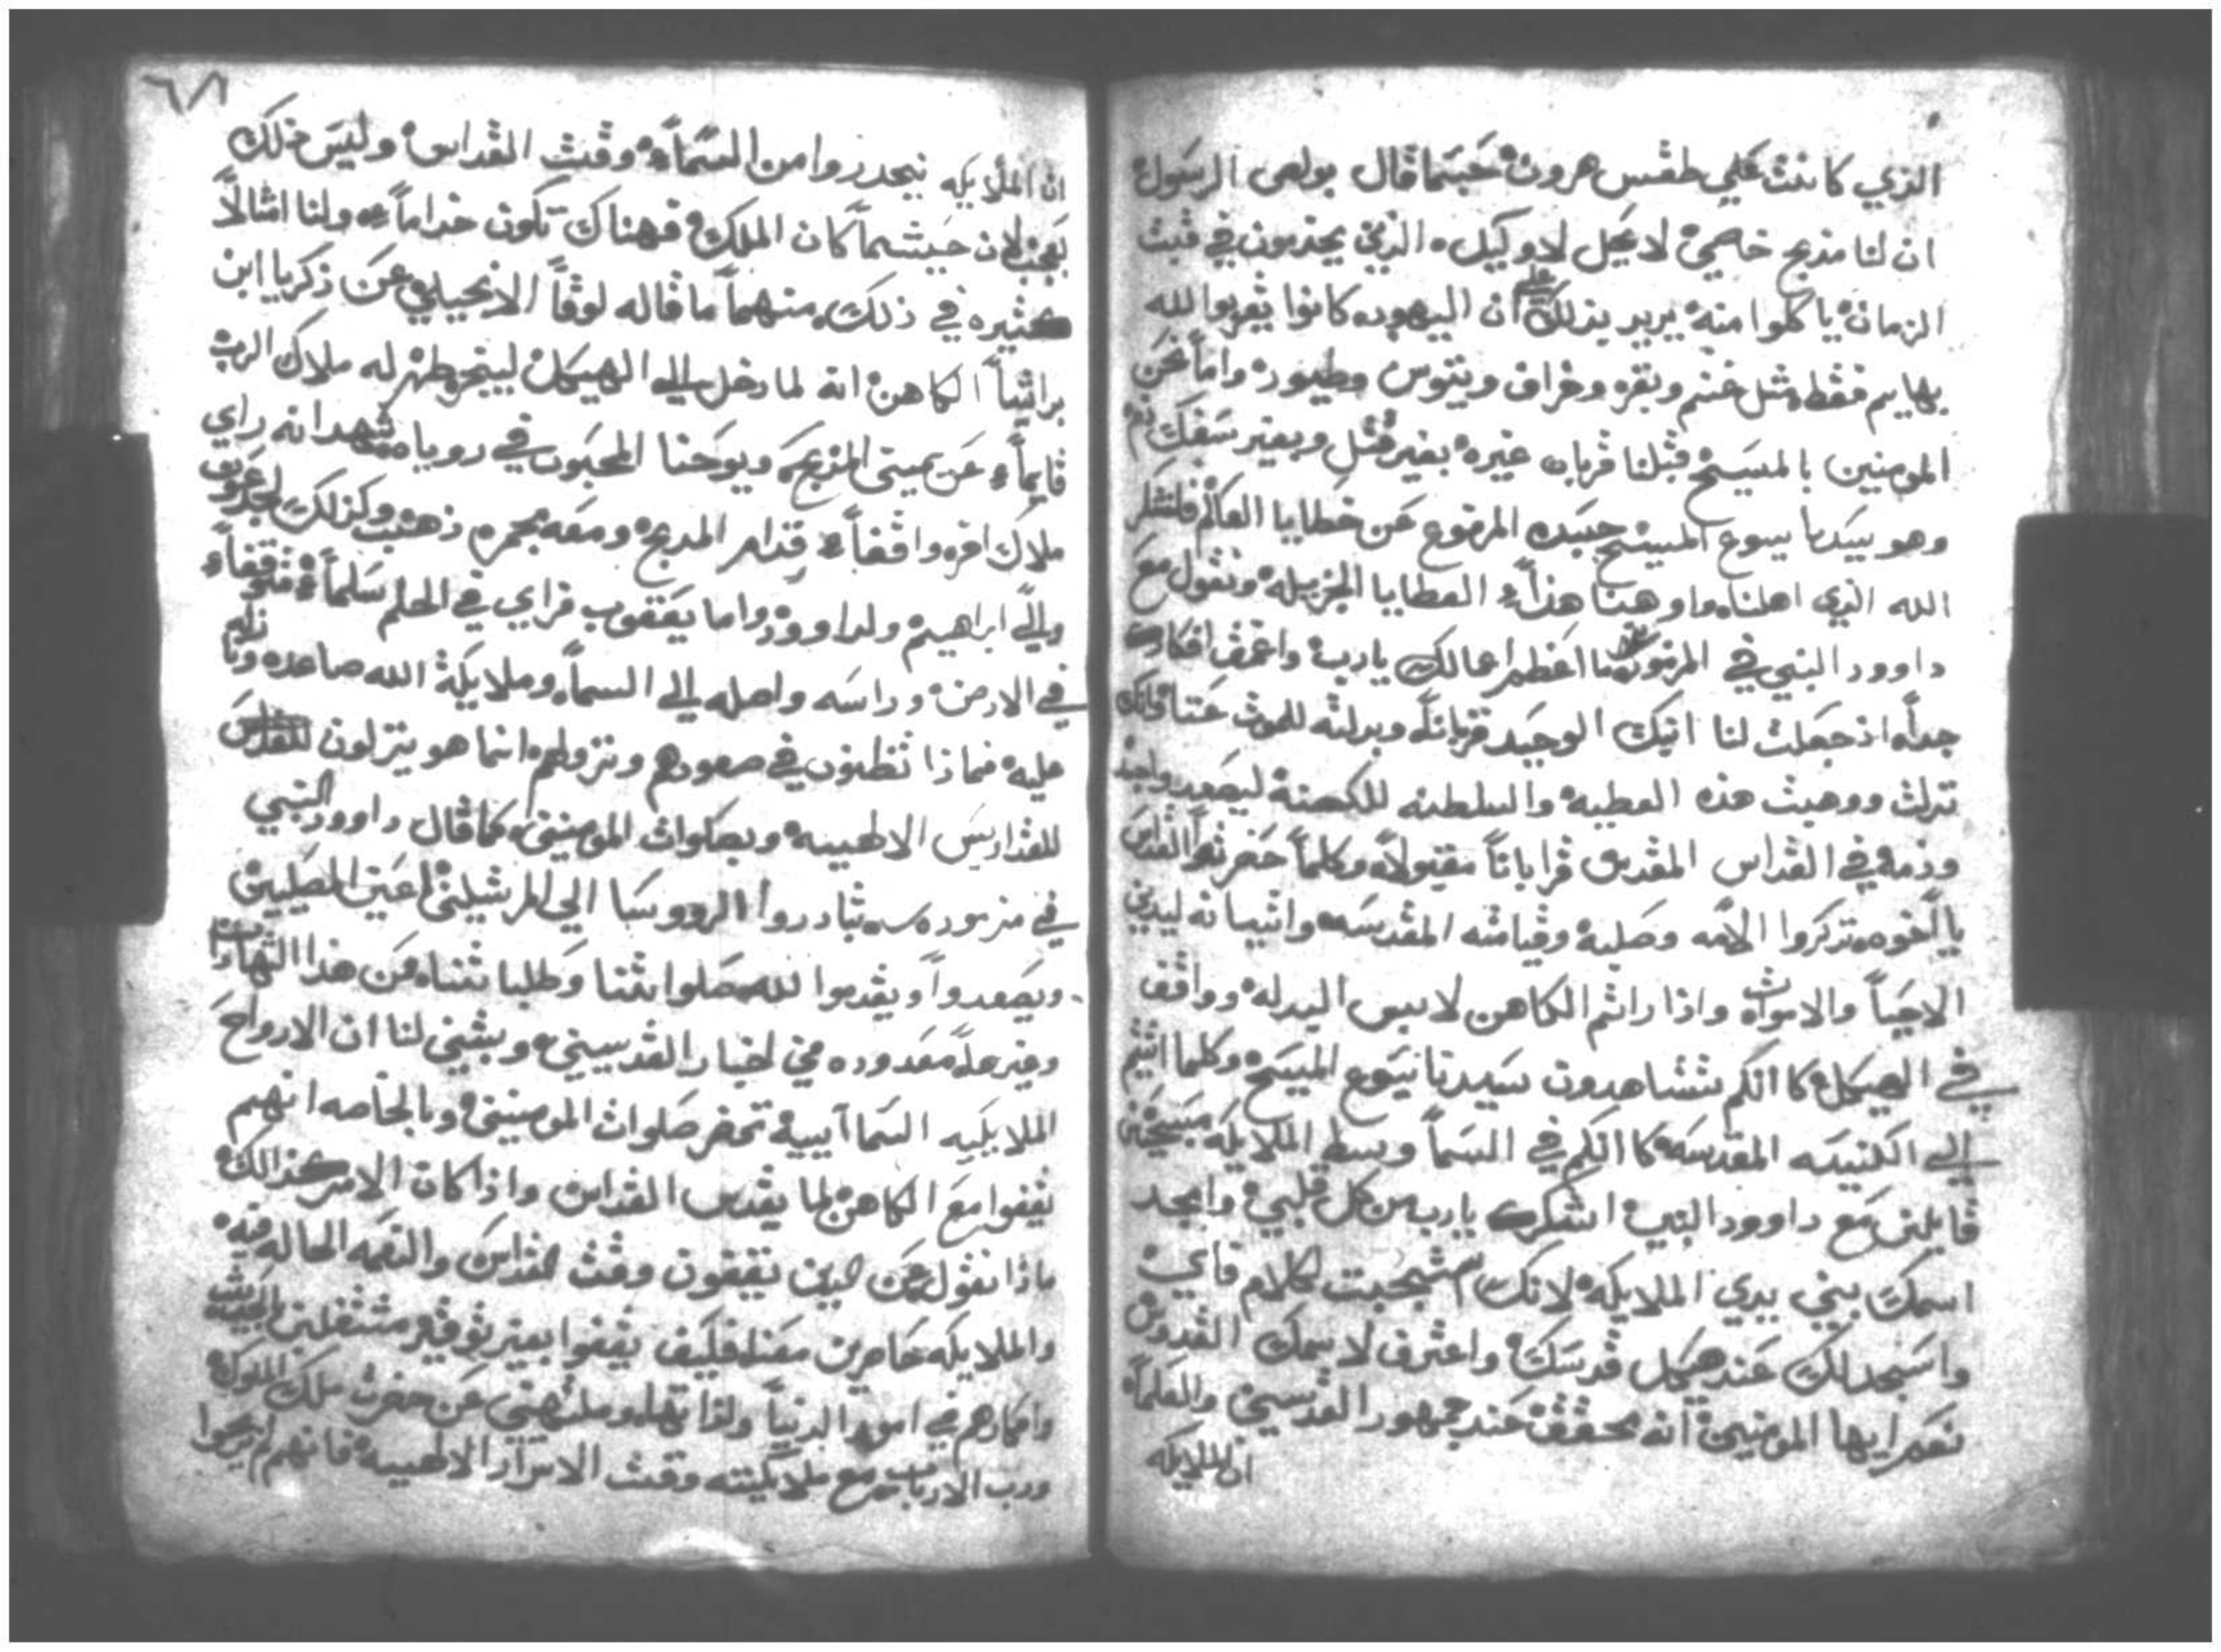 الذي كانت علي طقس هرون حسبما قال بولص الرسول
ان لنا مذبح خاصي لا يحل لاوليك الذين يخدمون في قبت
الزمان ياكلوا منه يريد بذلك علي ان اليهود كانوا يقربوا لله
بهايم فقط مثل غنم وبقر وخراف وتيوس وطيور واما نحن
المومنين بالمسيح قبلنا قربان غيره بغير قتل وبغير سفك دم
وهو سيدنا يسوع المسيح جسده المرفوع عن خطايا العالم فلنشكر
الله الذي اهلنا واوهبنا هذا العطايا الجزيله ونقول مع
داوود النبي في المزمور ما اعظم اعمالك يا رب واعمق افكارك
جداً اذ جعلت لنا ابنك الوحيد قرباناً وبدلته للموت عنا وانك
نزلت ووهبت هذه العطيه والسلطنه للكهنة ليصعدوا جسده
ودمه في القداس المقدس قراباناً مقبولاً وكلما حضرتوا القداس
يا اخوه تذكروا الامه وصلبه وقيامته المقدسه واتيانه ليدين
الاحيا والاموات واذا راتم الكاهن لابس البدله وواقف
في الهيكل كانكم تشاهدون سيدنا يسوع المسيح وكلما اتيتم
الي الكنيسه المقدسه كانكم في السما وسط الملايكه مسبحين
قايلين مع داوود النبي اشكرك يا رب من كل قلبي وامجد
اسمك بيني يدي الملايكه لانك استجبت لكلام فاي
واسجد لك عند هيكل قدسك واعترف لاسمك القدوس
نعم ايها المومنين انه محقق عند جمهور القديسين والعلما
ان الملايكه
٦٨
ان الملايكه ينحدروا من السماء وقت القداس وليس ذلك
بعجب لان حيثما كان الملك فهناك تكون خداماً ولنا امثالاً
كثيره في ذلك منهما ما قاله لوقا الانجيلي عن زكريا ابن
براشيا الكاهن انه لما دخل الي الهيكل ليبخر ظهر له ملاك الرب
قايماً عن يمين المذبح ويوحنا المحبوب في روياه شهد انه راي
ملاك اخر واقفاً قدام المذبح ومعه مجمره ذهب وكذلك لجدعون
والي ابراهيم ولداوود واما يعقوب فراي في الحلم سلماً منوقفاً
في الارض وراسه واصله الي السما وملايكة الله صاعده ونازله
عليه فماذا تظنون في صعودهم ونزولهم انما هو ينزلون للقداس
للقداديس الالهييه وبصلوات المومنين كما قال داوود النبي
في مزموره تبادروا الرووسا الي المرتلين اعين المصليين
ويصعدوا ويقدموا لله صلواتنا وطلباتنا فمن هذا الشهادات
وغيرها معدوده في اخبار القديسين وبتبني لنا ان الارواح
الملايكيه السماآييه تحضر صلوات المومنين وبالخاصه انهم
يقفوا مع الكاهن لما يقدس القداس واذا كان الامر كذالك
ماذا نقول عن الذين يقفون وقت القداس والنعمه الحاله فيه
والملايكه حاضرين معنا فكيف يقفوا بغير توقير مشتغلين بالحديث
وافكارهم في امور الدنيا ولذاتها وملتهيين عن حضرت ملك الملوك
ورب الارباب مع ملايكيته وقت الاسرار الالهييه فانهم لم يربحوا